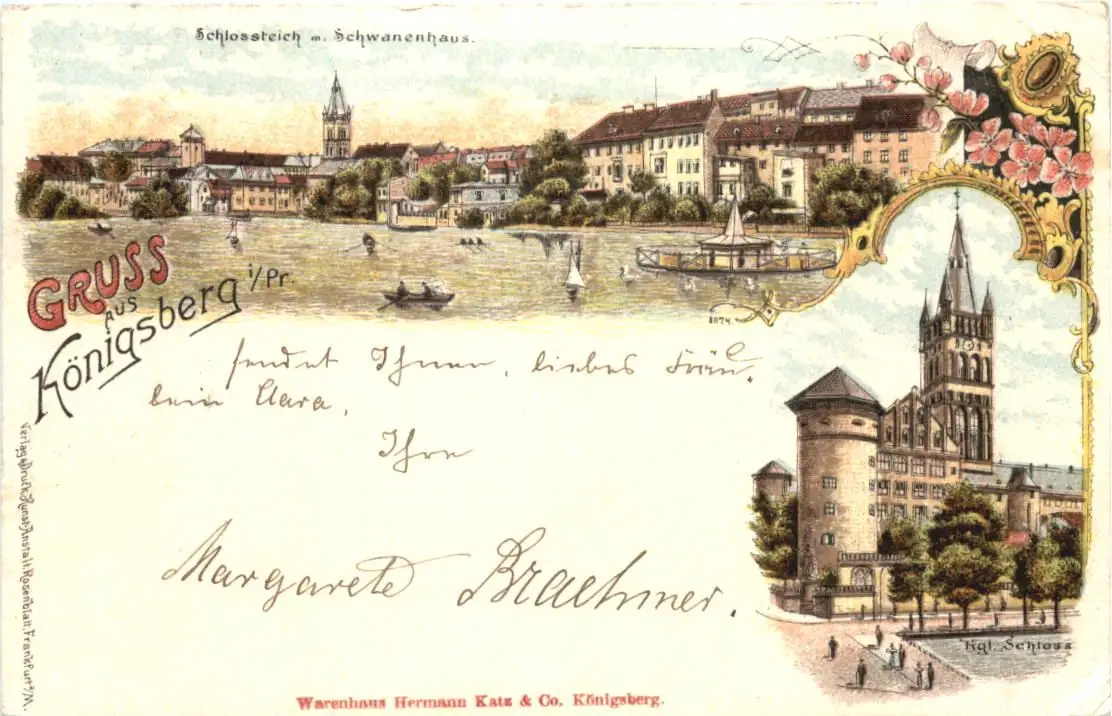 Schlossteich m. Schwanenhaus.
GRUSS
AUS
Königsberg i/Pr.
1874.
sendet Ihnen, liebes Fräu-
lein Clara,
Ihre
Margarete Braehmer.
Kgl. Schloss
Verlag & Druck Kunst-Anstalt Rosenblatt, Frankfurt a/M.
Warenhaus Hermann Katz & Co. Königsberg.